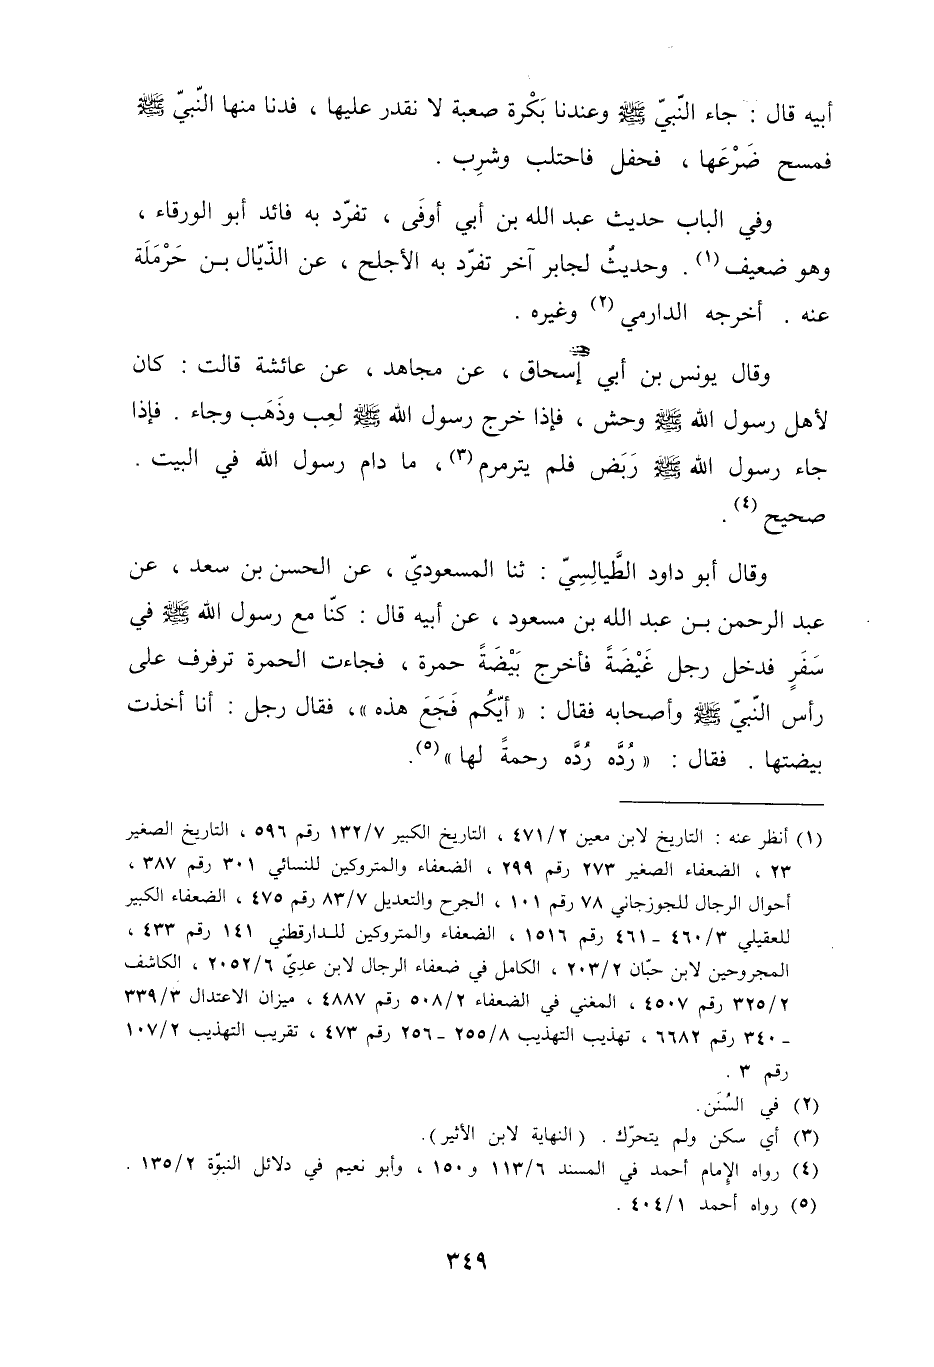 أبيه قال : جاء النّبيّ ﷺ وعندنا بَكْرة صعبة لا نقدر عليها ، فدنا منها النّبيّ ﷺ
فمسح ضَرْعَها ، فحفل فاحتلب وشرِب .
وفي الباب حديث عبد الله بن أبي أوفَى ، تفرّد به فائد أبو الورقاء ،
وهو ضعيف(١) . وحديثٌ لجابر آخر تفرّد به الأجلح ، عن الذّيّال بـن حَرْمَلَة
عنه . أخرجه الدارمي(٢) وغيره .
وقال يونس بن أبي إسحاق ، عن مجاهد ، عن عائشة قالت : كان
لأهل رسول الله ﷺ وحش ، فإذا خرج رسول الله ﷺ لعِب وذَهَب وجاء . فإذا
جاء رسول الله ﷺ رَبَض فلم يترمرم(٣) ، ما دام رسول الله في البيت .
صحيح(٤) .
وقال أبو داود الطَّيالِسِيّ : ثنا المسعوديّ ، عن الحسن بن سعد ، عن
عبد الرحمن بـن عبد الله بن مسعود ، عن أبيه قال : كنّا مع رسول الله ﷺ في
سَفَرٍ فدخل رجل غَيْضَةً فأخرج بَيْضَةً حمرة ، فجاءت الحمرة ترفرف على
رأس النّبيّ ﷺ وأصحابه فقال : « أيّكُم فَجَعَ هذه » ، فقال رجل : أنا أخذت
بيضتها . فقال : « رُدَّه رُدَّه رحمةً لها »(٥) .
(١) أنظر عنه : التاريخ لابن معين ٤٧١/٢ ، التاريخ الكبير ١٣٢/٧ رقم ٥٩٦ ، التاريخ الصغير
٢٣ ، الضعفاء الصغير ٢٧٣ رقم ٢٩٩ ، الضعفاء والمتروكين للنسائي ٣٠١ رقم ٣٨٧ ،
أحوال الرجال للجوزجاني ٧٨ رقم ١٠١ ، الجرح والتعديل ٨٣/٧ رقم ٤٧٥ ، الضعفاء الكبير
للعقيلي ٤٦٠/٣ ـ ٤٦١ رقم ١٥١٦ ، الضعفاء والمتروكين للـدارقطني ١٤١ رقم ٤٣٣ ،
المجروحين لابن حبّان ٢٠٣/٢ ، الكامل في ضعفاء الرجال لابن عديّ ٢٠٥٢/٦ ، الكاشف
٣٢٥/٢ رقم ٤٥٠٧ ، المغني في الضعفاء ٥٠٨/٢ رقم ٤٨٨٧ ، ميزان الاعتدال ٣٣٩/٣
ـ ٣٤٠ رقم ٦٦٨٢ ، تهذيب التهذيب ٢٥٥/٨ ـ ٢٥٦ رقم ٤٧٣ ، تقريب التهذيب ١٠٧/٢
رقم ٣ .
(٢) في السُنَن .
(٣) أي سكن ولم يتحرّك . (النهاية لابن الأثير) .
(٤) رواه الإمام أحمد في المسند ١١٣/٦ و ١٥٠ ، وأبو نعيم في دلائل النبوّة ١٣٥/٢ .
(٥) رواه أحمد ٤٠٤/١ .
٣٤٩